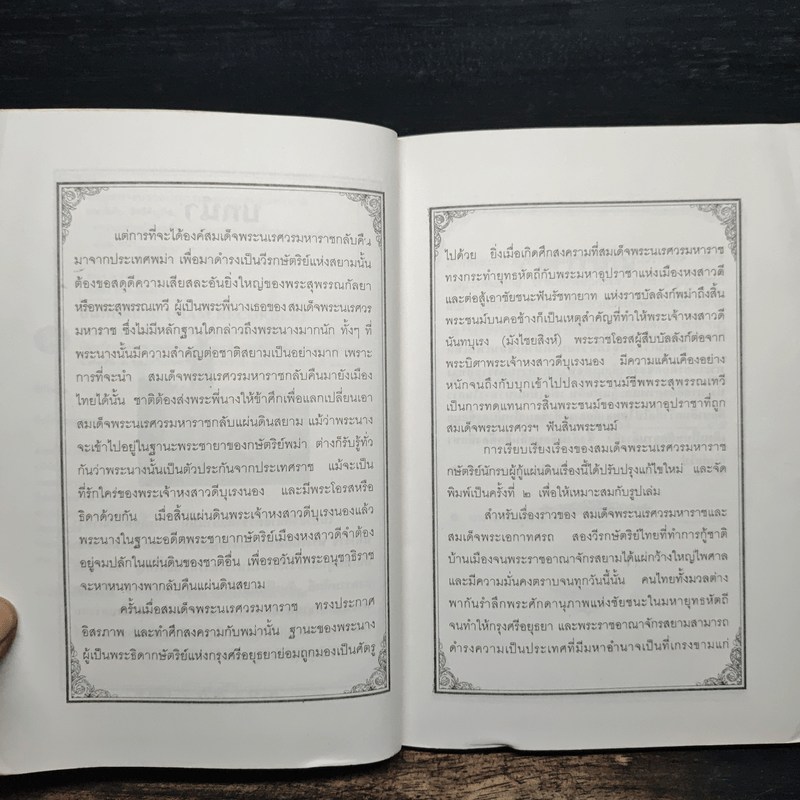 แต่การที่จะได้องค์สมเด็จพระนเรศวรมหาราชกลับคืน
มาจากประเทศพม่า เพื่อมาดำรงเป็นวีรกษัตริย์แห่งสยามนั้น
ต้องขอสดุดีความเสียสละอันยิ่งใหญ่ของพระสุพรรณกัลยา
หรือพระสุพรรณเทวี ผู้เป็นพระพี่นางเธอของ สมเด็จพระนเรศวร
มหาราช ซึ่งไม่มีหลักฐานใดกล่าวถึงพระนางมากนัก ทั้งๆ ที่
พระนางนั้นมีความสำคัญต่อชาติสยามเป็นอย่างมาก เพราะ
การที่จะนำ สมเด็จพระนเรศวรมหาราชกลับคืนมายังเมือง
ไทยได้นั้น ชาติต้องส่งพระพี่นางให้ข้าศึกเพื่อแลกเปลี่ยนเอา
สมเด็จพระนเรศวรมหาราชกลับแผ่นดินสยาม แม้ว่าพระนาง
จะเข้าไปอยู่ในฐานะพระชายาของกษัตริย์พม่า ต่างก็รับรู้ทั่ว
กันว่าพระนางนั้นเป็นตัวประกันจากประเทศราช แม้จะเป็น
ที่รักใคร่ของพระเจ้าหงสาวดีบุเรงนอง และมีพระโอรสหรือ
ธิดาด้วยกัน เมื่อสิ้นแผ่นดินพระเจ้าหงสาวดีบุเรงนองแล้ว
พระนางในฐานะอดีตพระชายากษัตริย์เมืองหงสาวดีจำต้อง
อยู่จมปลักในแผ่นดินของชาติอื่น เพื่อรอวันที่พระอนุชาธิราช
จะหาหนทางพากลับคืนแผ่นดินสยาม
ครั้นเมื่อสมเด็จพระนเรศวรมหาราช ทรงประกาศ
อิสรภาพ และทำศึกสงครามกับพม่านั้น ฐานะของพระนาง
ผู้เป็นพระธิดากษัตริย์แห่งกรุงศรีอยุธยาย่อมถูกมองเป็นศัตรู
ไปด้วย ยิ่งเมื่อเกิดศึกสงครามที่สมเด็จพระนเรศวรมหาราช
ทรงกระทำยุทธหัตถีกับพระมหาอุปราชาแห่งเมืองหงสาวดี
และต่อสู้เอาชัยชนะฟันรัชทายาท แห่งราชบัลลังก์พม่าถึงสิ้น
พระชนม์บนคอช้างก็เป็นเหตุสำคัญที่ทำให้พระเจ้าหงสาวดี
นันทบุเรง (มังไชยสิงห์) พระราชโอรสผู้สืบบัลลังก์ต่อจาก
พระบิดาพระเจ้าหงสาวดีบุเรงนอง มีความแค้นเคืองอย่าง
หนักจนถึงกับบุกเข้าไปปลงพระชนม์ชีพพระสุพรรณเทวี
เป็นการทดแทนการสิ้นพระชนม์ของพระมหาอุปราชาที่ถูก
สมเด็จพระนเรศวรฯ ฟันสิ้นพระชนม์
การเรียบเรียงเรื่องของสมเด็จพระนเรศวรมหาราช
กษัตริย์นักรบผู้กู้แผ่นดินเรื่องนี้ได้ปรับปรุงแก้ไขใหม่ และจัด
พิมพ์เป็นครั้งที่ ๒ เพื่อให้เหมาะสมกับรูปเล่ม
สำหรับเรื่องราวของ สมเด็จพระนเรศวรมหาราชและ
สมเด็จพระเอกาทศรถ สองวีรกษัตริย์ไทยที่ทำการกู้ชาติ
บ้านเมืองจนพระราชอาณาจักรสยามได้แผ่กว้างใหญ่ไพศาล
และมีความมั่นคงตราบจนทุกวันนี้นั้น คนไทยทั้งมวลต่าง
พากันรำลึกพระศักดานุภาพแห่งชัยชนะในมหายุทธหัตถี
จนทำให้กรุงศรีอยุธยา และพระราชอาณาจักรสยามสามารถ
ดำรงความเป็นประเทศที่มีมหาอำนาจเป็นที่เกรงขามแก่